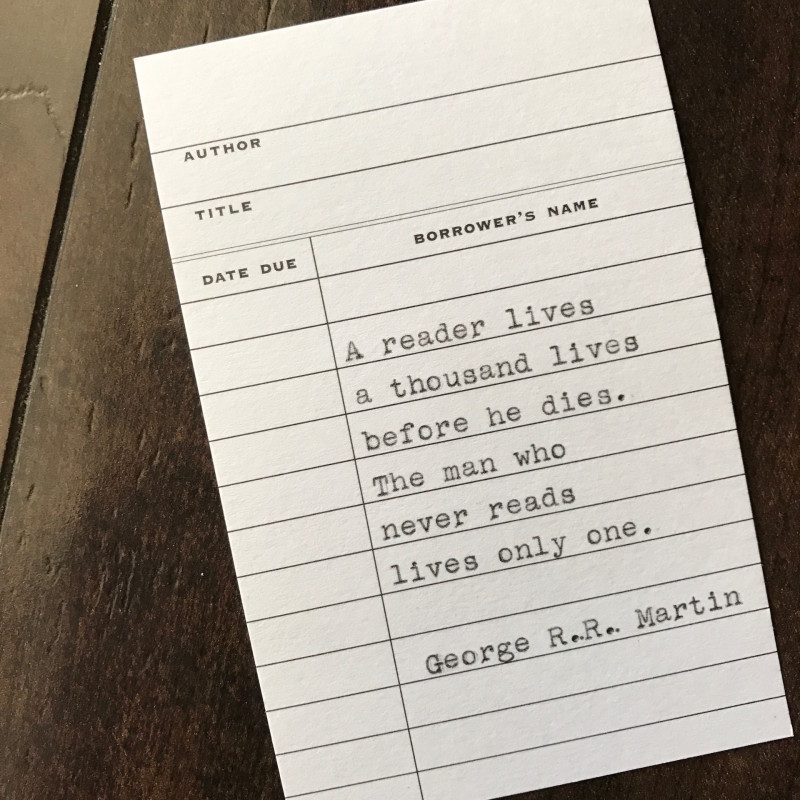 AUTHOR
TITLE
DATE DUE
BORROWER'S NAME
A reader lives
a thousand lives
before he dies.
The man who
never reads
lives only one.
George R.R. Martin